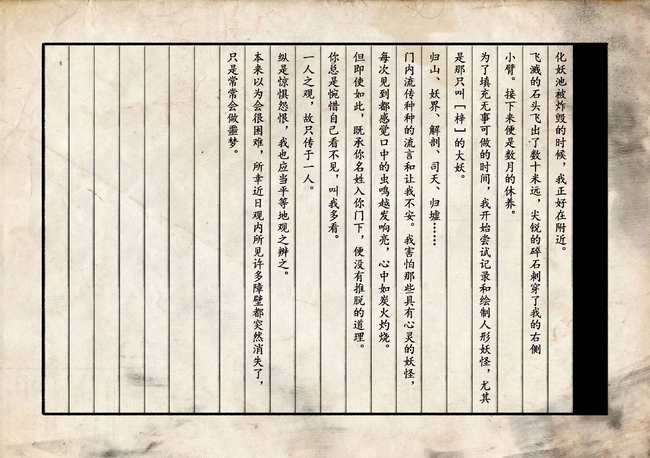 化妖池被炸毁的时候，我正好在附近。
飞溅的石头飞出了数十米远，尖锐的碎石刺穿了我的右侧
小臂。接下来便是数月的休养。
为了填充无事可做的时间，我开始尝试记录和绘制人形妖怪，尤其
是那只叫［梓］的大妖。
归山、妖界、解剖、司天、归墟……
门内流传种种的流言和让我不安。我害怕那些具有心灵的妖怪，
每次见到都感觉口中的虫鸣越发响亮，心中如炭火灼烧。
但即使如此，既承你名姓入你门下，便没有推脱的道理。
你总是惋惜自己看不见，叫我多看。
一人之观，故只传于一人。
纵是惊惧怨恨，我也应当平等地观之辨之。
本来以为会很困难，所幸近日观内所见许多障壁都突然消失了，
只是常常会做噩梦。